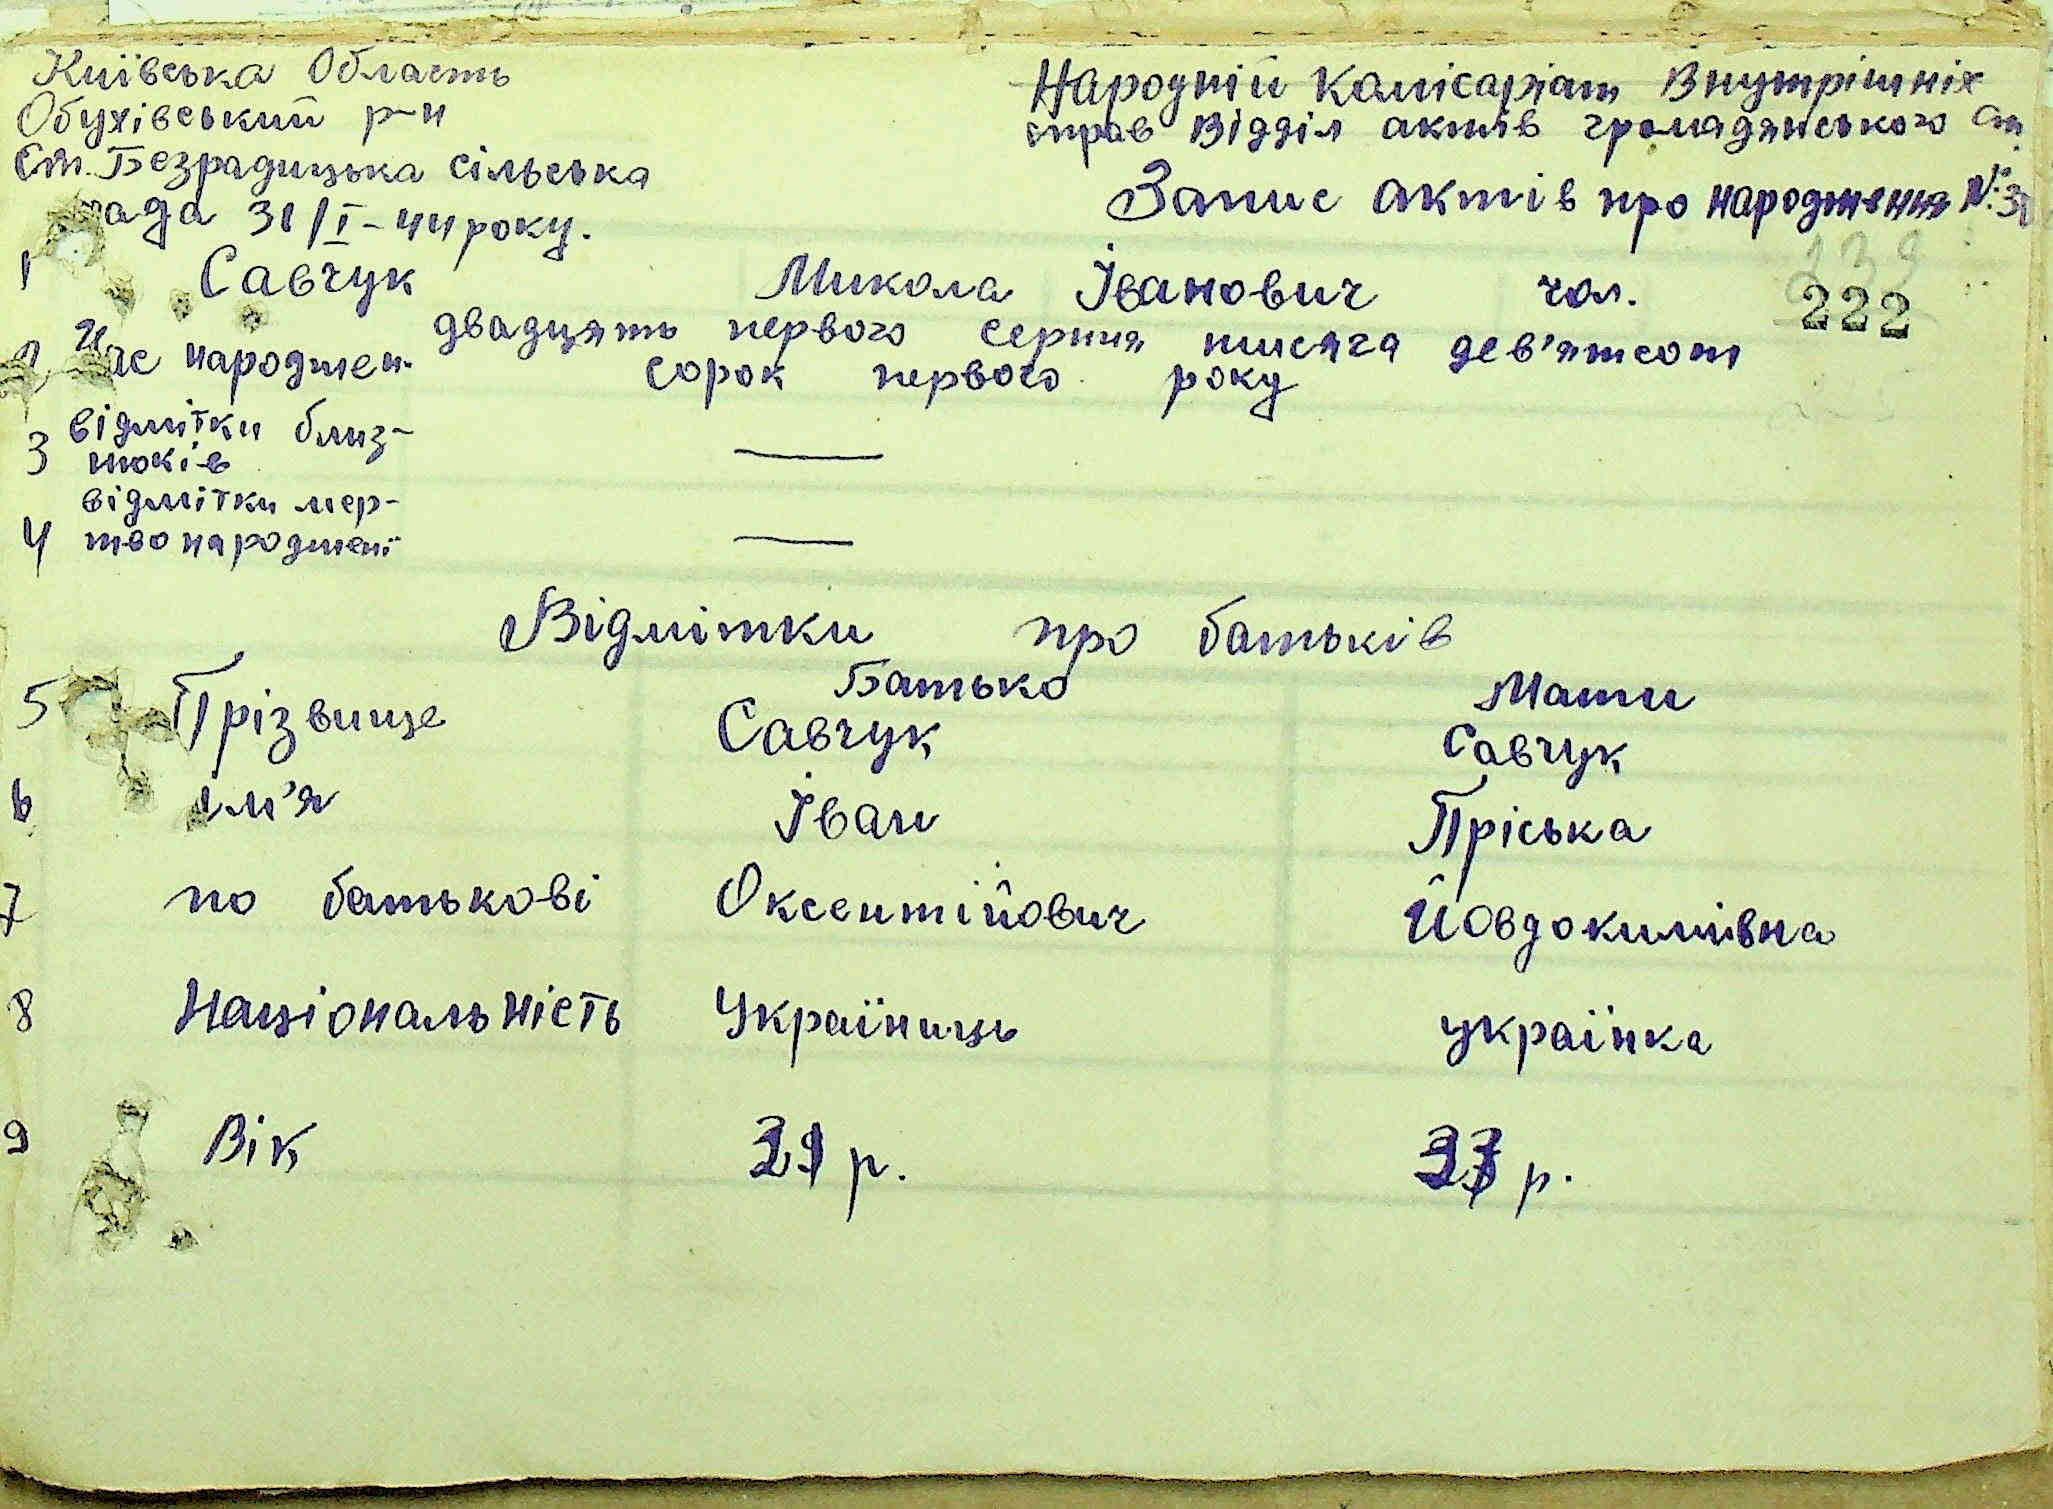 Київська Область
Обухівський р-н
Ст. Безрадицька сільська
рада 31/I-44 року.
Народній Комісаріат Внутрішніх
справ Відділ актів громадянського ст.
Запис актів про народження №
239
222
1 Савчук Микола Іванович чол.
2 Час народжен. двадцять первого серпня тисяча дев'ятсот
сорок первого року
3 відмітки близ-
нюків —
4 відмітки мер-
твонароджені —
Відмітки про батьків
Батько Мати
5 Прізвище Савчук Савчук
6 ім'я Іван Пріська
7 по батькові Оксентійович Йовдокимівна
8 Національність Українць українка
9 Вік р. р.